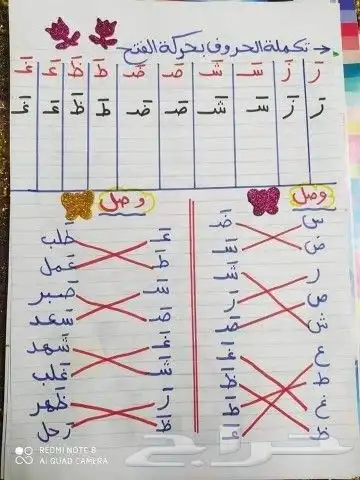 تكملة الحروف بحركة الفتح
رَ زَ سَـ شَـ صَـ ضَـ طَ ظَ عَـ غَـ
رَ زَ سَـ شَـ صَـ ضَـ طَ ظَ عَـ غَـ
وصل
س ضَـ
ض سَـ
ر شَـ
ص رَ
ش صَـ
ع غَـ
ط ظَـ
غ طَـ
ظ عَـ
وصل
عَـ طَلب
طَـ عَمل
سَـ صَبر
صَـ سَعد
غَـ شَهد
شَـ غَلب
رَ ظَهر
ظَـ رَحل
حراج
REDMI NOTE 8
AI QUAD CAMERA